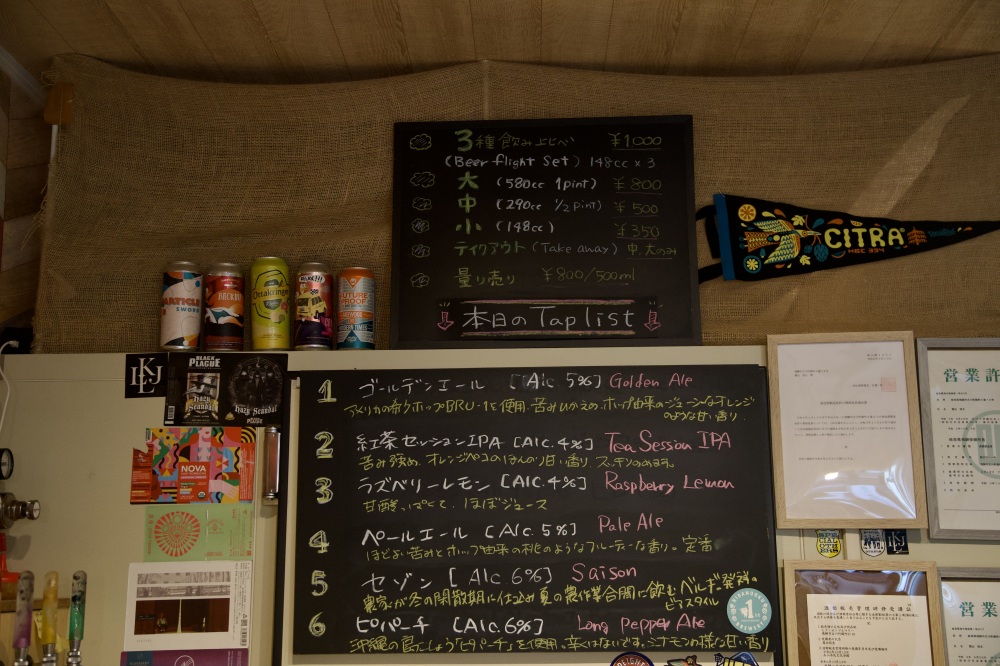 3種飲み比べ ¥1000
(Beer flight Set) 148cc x 3
大 (580cc 1pint) ¥800
中 (290cc 1/2 pint) ¥500
小 (148cc) ¥350
テイクアウト (Take away) 中.大のみ
量り売り ¥800/500ml
本日の Tap list
CITRA
Ottakringer
FUTURE PROOF
LKJ
BLACK PLAGUE
Hazy Scandal
Hazy Scandal
NOVA
1 ゴールデンエール [Alc 5%] Golden Ale
アメリカの希少ホップBRU-1を使用.苦みひかえめ.ホップ由来のジューシーなオレンジ
のような甘い香り.
2 紅茶セッションIPA [Alc.4%] Tea Session IPA
苦み強め.オレンジペコのほんのり甘い香り.スッキリのみます。
3 ラズベリーレモン [Alc.4%] Raspberry Lemon
甘酸っぱくて、ほぼジュース
4 ペールエール [Alc.5%] Pale Ale
ほどよい苦みとホップ由来の桃のようなフルーティーな香り。定番
5 セゾン [Alc 6%] Saison
農家が冬の閑散期に仕込み夏の農作業合間に飲むベルギー発祥の
ビアスタイル
6 ピパーチ [Alc.6%] Long Pepper Ale
沖縄の島こしょう「ピパーチ」を使用.辛くはないです。シナモンの様な甘い香り
営業許
営業